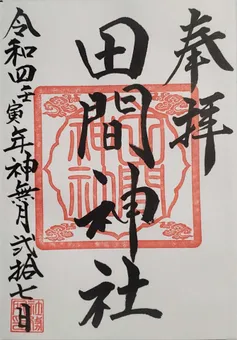 奉拝
田間神社
令和四壬寅年神無月弐拾七日